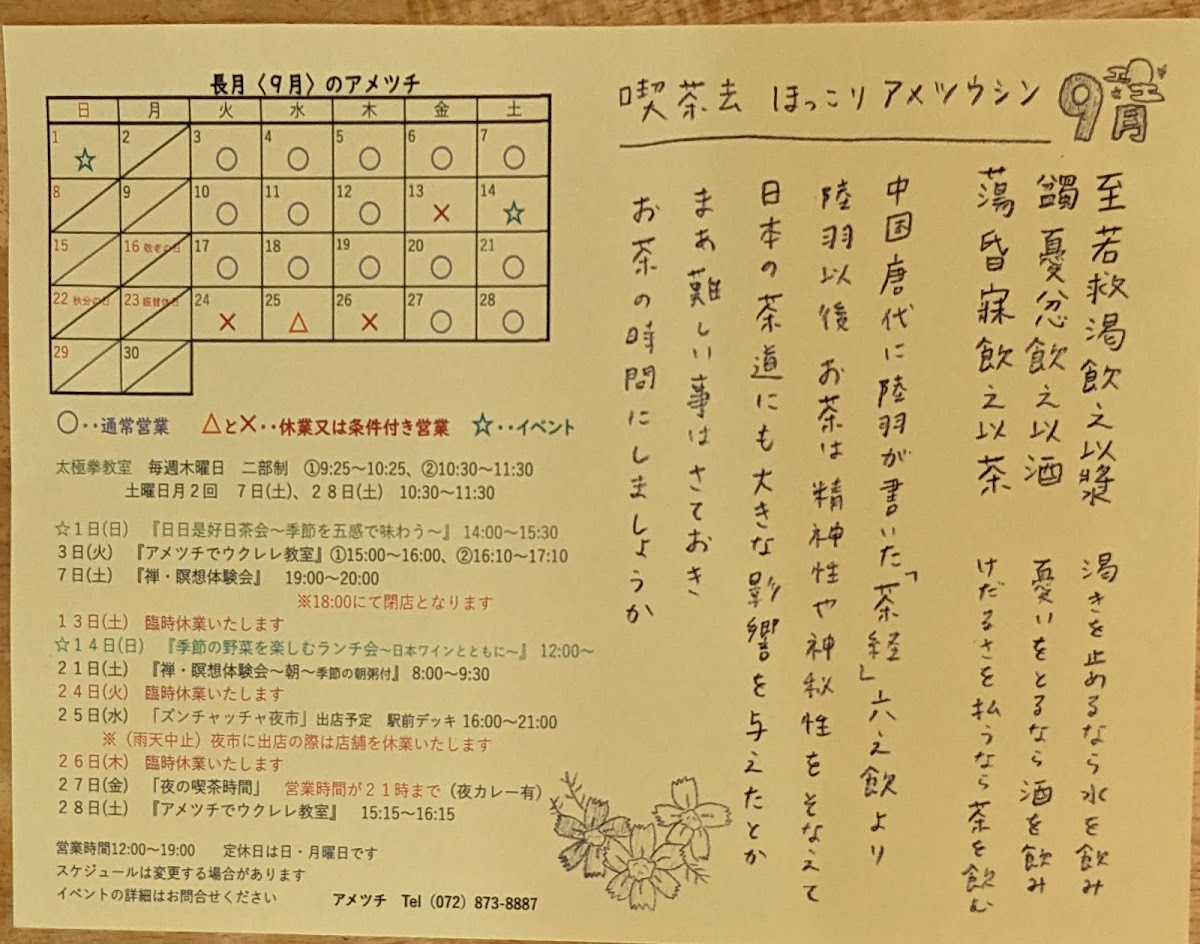 長月〈9月〉のアメツチ
日 月 火 水 木 金 土
1 ☆ 2 3 ○ 4 ○ 5 ○ 6 ○ 7 ○
8 9 10 ○ 11 ○ 12 ○ 13 × 14 ☆
15 16 敬老の日 17 ○ 18 ○ 19 ○ 20 ○ 21 ○
22 秋分の日 23 振替休日 24 × 25 △ 26 × 27 ○ 28 ○
29 30
○‥通常営業 △と×‥休業又は条件付き営業 ☆‥イベント
太極拳教室 毎週木曜日 二部制 ①9:25～10:25、②10:30～11:30
土曜日月２回 ７日(土)、２８日(土) 10:30～11:30
☆１日(日) 『日日是好日茶会～季節を五感で味わう～』 14:00～15:30
３日(火) 『アメツチでウクレレ教室』①15:00～16:00、②16:10～17:10
７日(土) 『禅・瞑想体験会』 19:00～20:00
※18:00にて閉店となります
１３日(土) 臨時休業いたします
☆１４日(日) 『季節の野菜を楽しむランチ会～日本ワインとともに～』 12:00～
２１日(土) 『禅・瞑想体験会～朝～季節の朝粥付』 8:00～9:30
２４日(火) 臨時休業いたします
２５日(水) 「ズンチャッチャ夜市」出店予定 駅前デッキ 16:00～21:00
※（雨天中止）夜市に出店の際は店舗を休業いたします
２６日(木) 臨時休業いたします
２７日(金) 「夜の喫茶時間」 営業時間が２１時まで（夜カレー有）
２８日(土) 『アメツチでウクレレ教室』 15:15～16:15
営業時間12:00～19:00 定休日は日・月曜日です
スケジュールは変更する場合があります
イベントの詳細はお問合せください
アメツチ Tel（072）873-8887
喫茶去 ほっこりアメツウシン
9月
至若救渇飲之以漿 渇きを止めるなら水を飲み
蠲憂忿飲之以酒 憂いをとるなら酒を飲み
蕩昏寐飲之以茶 けだるさを払うなら茶を飲む
中国唐代に陸羽が書いた「茶経」六之飲より
陸羽以後 お茶は精神性や神秘性をそなえて
日本の茶道にも大きな影響を与えたとか
まあ難しい事はさておき
お茶の時間にしましょうか